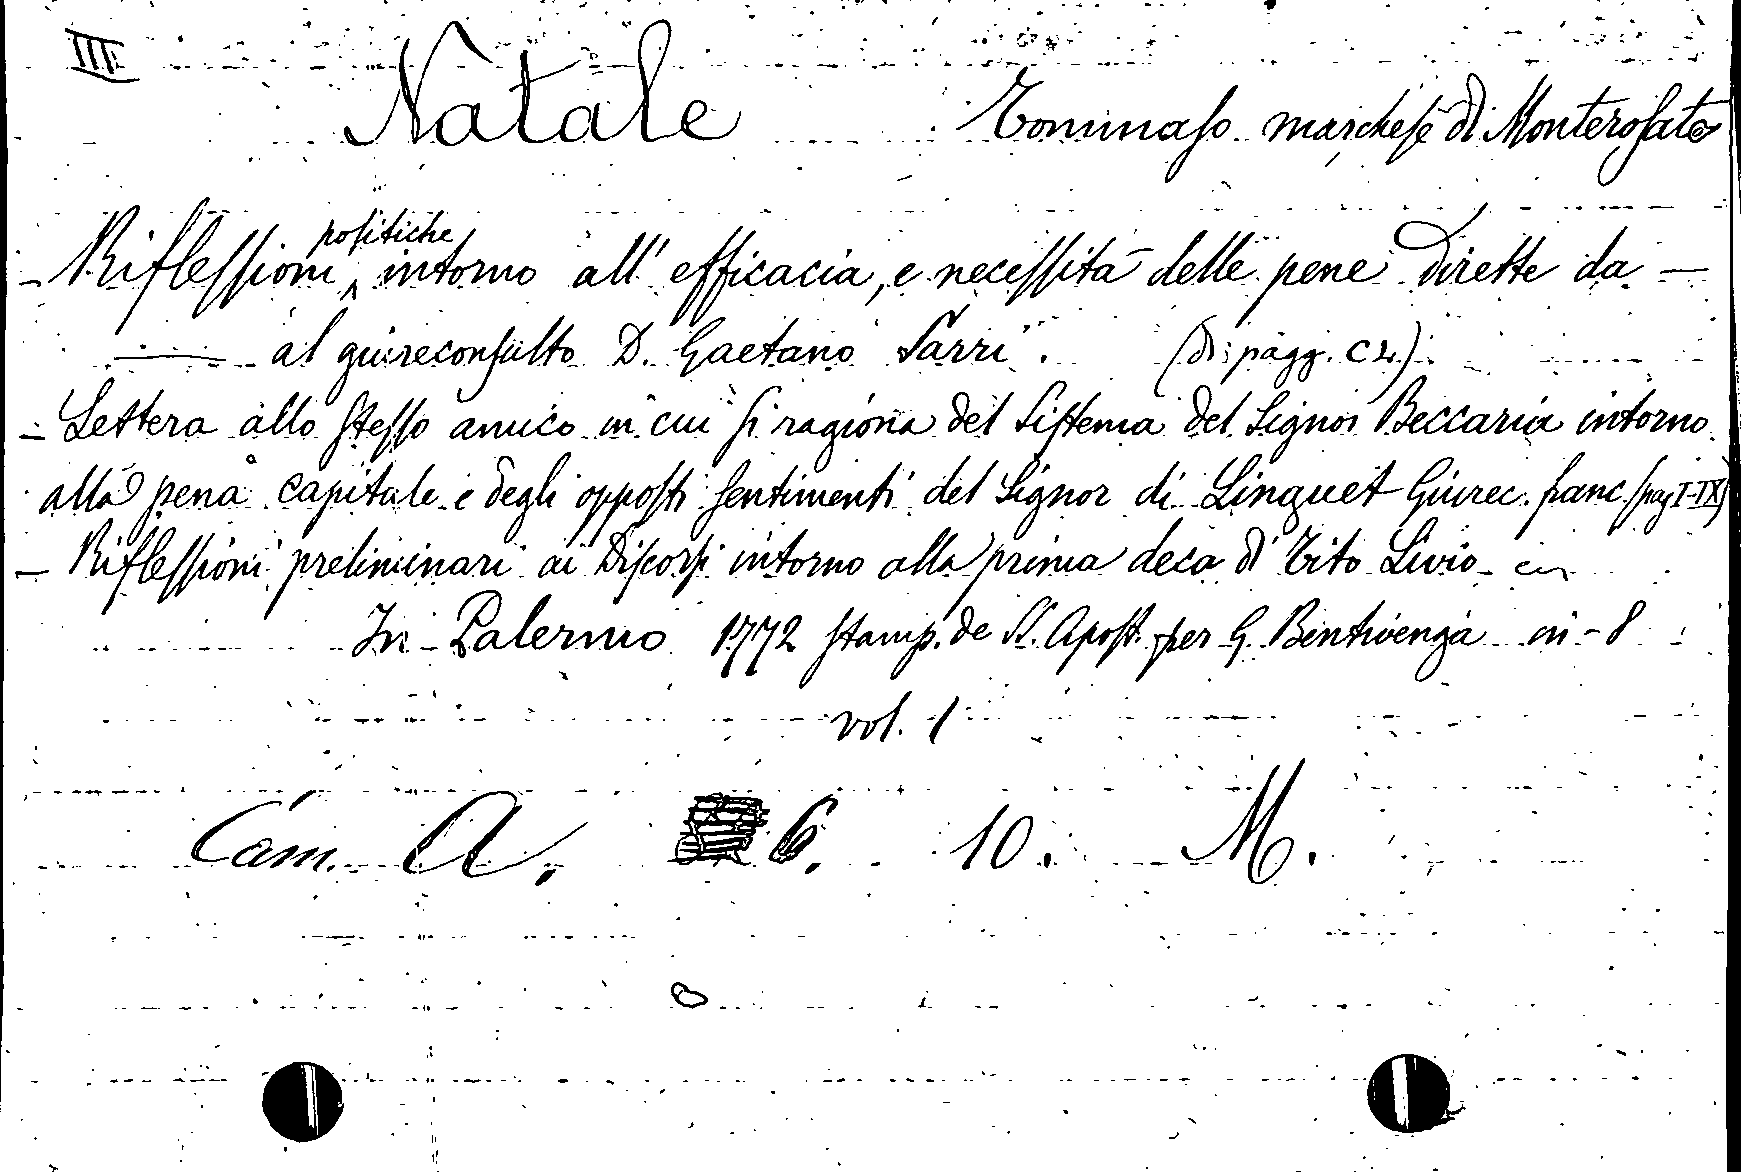 III.
Natale Tommaso marchese di Monterosato
- Riflessioni politiche intorno all' efficacia, e necessità delle pene dirette da —
— al giureconsulto D. Gaetano Sarri. (di pagg. CL).
- Lettera allo stesso amico in cui si ragiona del Sistema del Signor Beccaria intorno
alla pena capitale e degli opposti sentimenti del Signor di Linguet Giurec. franc. (pag I-IX)
- Riflessioni preliminari ai Discorsi intorno alla prima deca di Tito Livio -
In Palermo 1772 stamp. de SS. Apost. per G. Bentivenga in-8
vol. 1
Cam. A. 6. 10. M.